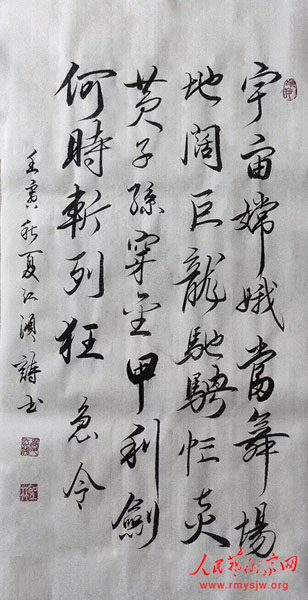 宇宙嫦娥當舞場
地阔巨龍馳騁忙炎
黄子孫穿金甲利劍
何時斬列狂急令
壬寅秋夏江詩书
人民藝術家网
www.rmysjw.org